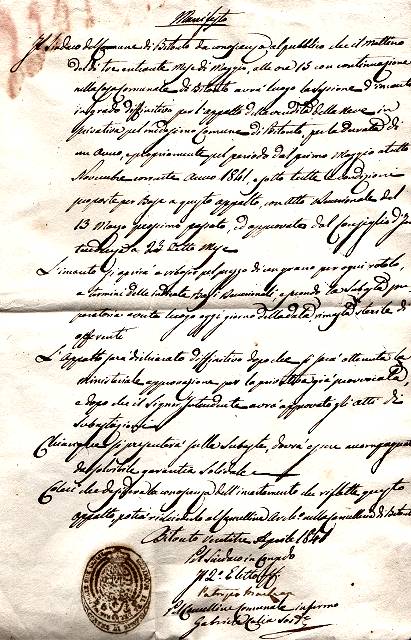 Manifesto
Il Sindaco del Comune di Bitonto da conoscenza al pubblico che il mattino
del dì tre entrante Mese di Maggio, alle ore 15 con continuazione
nella Casa Comunale di Bitonto avrà luogo la sessione d'incanto
in grado diffinitivo per l'appalto della vendita della Neve in
privativa nel medesimo Comune di Bitonto, per la durata di
un Anno, e propriamente pel periodo dal primo Maggio a tutto
Novembre corrente Anno 1841, e sotto tutte le condizioni
proposte per base a questo appalto, con atto Decurionale del
13 Marzo prossimo passato, ed approvato dal Consiglio d'In
tendenza a 23 detto Mese
L'incanto si aprirà a ribasso sul prezzo di un grano per ogni rotolo,
a termini delle indicate basi Decurionali, e secondo la subasta pre
paratoria avuta luogo oggi giorno della data rimasta sterile di
offerente
L'Appalto sarà dichiarato diffinitivo dopo che si sarà ottenuta la
Ministeriale approvazione per la privativa già
e dopo che il Signor Intendente avrà approvato gli atti di
subastazione
Chiunque si presenterà sulla subasta, dovrà essere accompagnato
da solvibile garentia solidale
Colui che desidera la conoscenza dell'incartamento che riflette questo
appalto, potrà richiederlo al Cancelliere Arch.º nella Cancelleria di Bitonto
Bitonto ventitre Aprile 1841
Pel Sindaco in Congedo
Il 2º Eletto ff.
Pel Cancelliere Comunale infermo
Gabriele Calia Sost.º